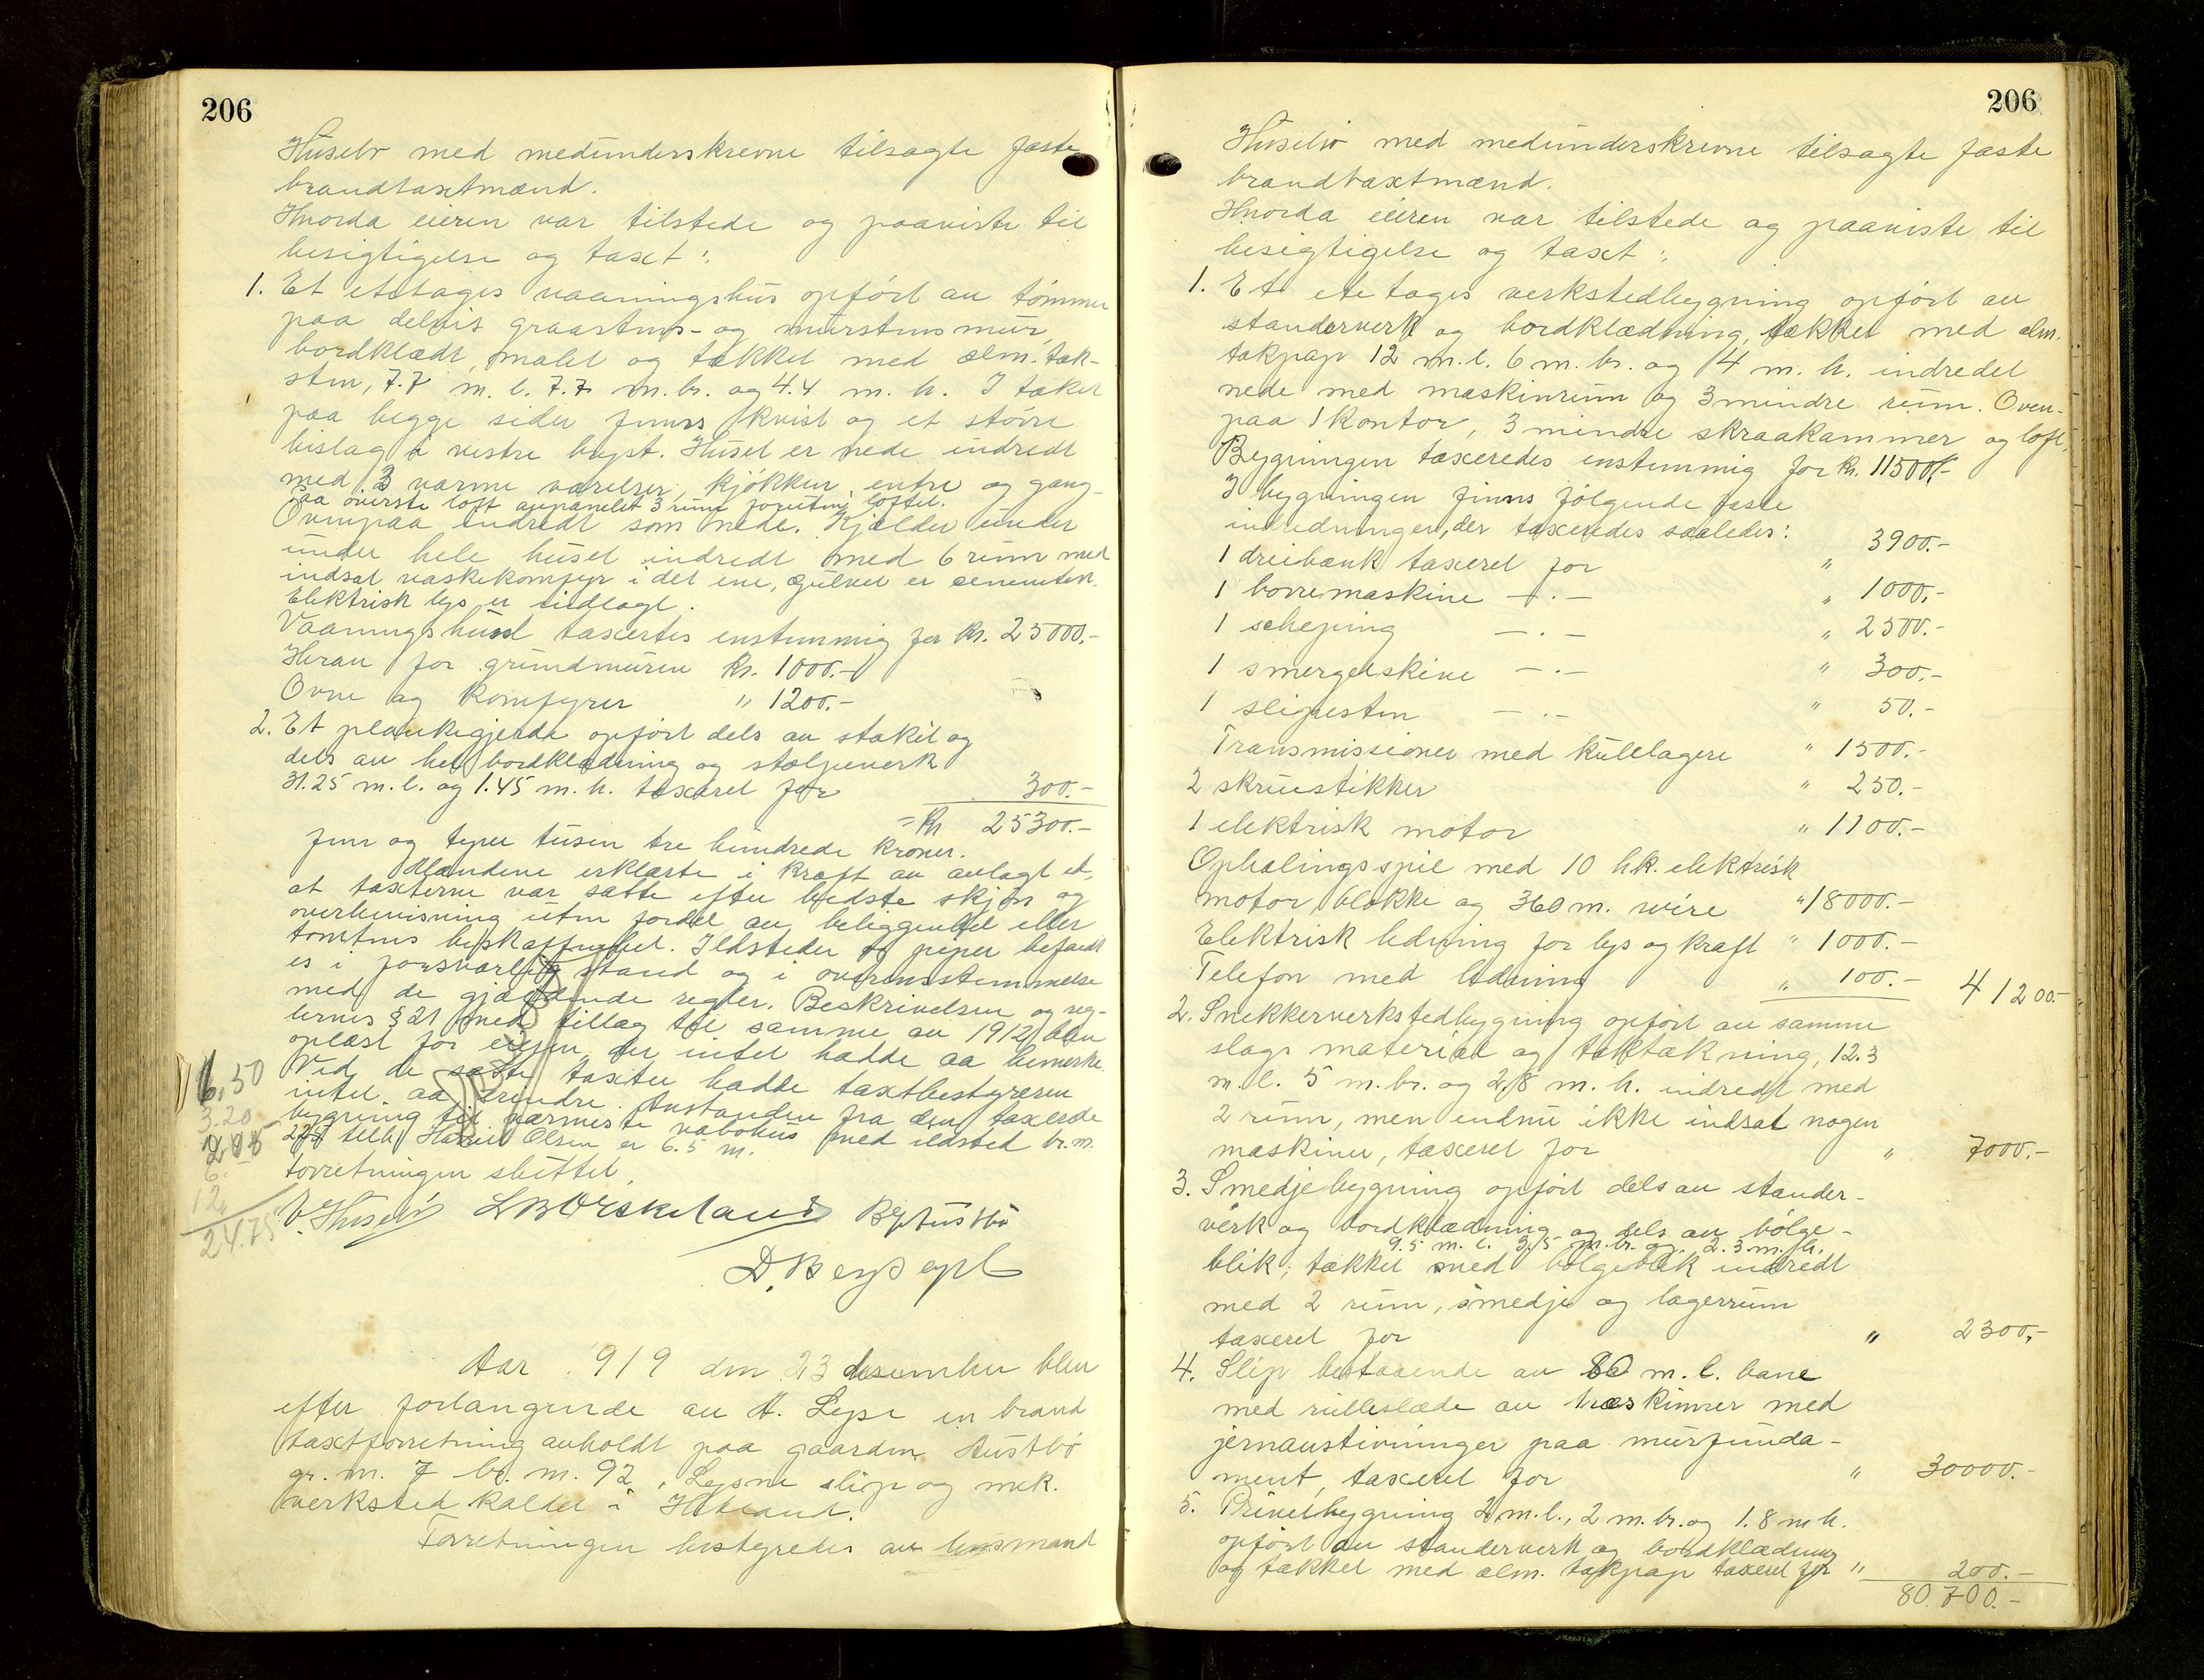 206
Husebø med medunderskrevne tilsagte faste
brandtaxtmænd.
Hvorda eieren var tilstede og paaviste til
besigtigelse og taxt:
1. Et etetages vaaningshus opført av tømmer
paa delvis graastens- og murstensmur,
bordklædt, malet og tækket med alm. tak-
sten, 7.7 m. l. 7.7 m. br. og 4.4 m. h. I taket
paa begge sider finnes kvist og et større
bislag i vestre bygst. Huset er nede indredt
med 3 varme værelser, kjøkken, entre og gang
paa øverste loft avpanelet 3 rum foruten loftet.
Ovenpaa indredt som nede. Kjælder under
under hele huset indredt med 6 rum med
indsat vaskekomfyr i det ene, gulvet er cementert.
Elektrisk lys er indlagt.
Vaaningshuset taxertes enstemmig for kr. 25000.-
Herav for grundmuren kr. 1000.-
Ovne og komfyrer " 1200.-
2. Et plankegjerde opført dels av stakit og
dels av hel bordklædning og stolpeverk
31.25 m. l. og 1.45 m. h. taxeret for 300.-
= Kr 25300.-
fem og tyve tusen tre hundrede kroner.
Mændene erklærte i kraft av avlagt ed,
at taxterne var satte efter bedste skjøn og
overbevisning uten fordel av beliggenhet eller
tomtens beskaffenhet. Ildsteder og piper befandt
es i forsvarlig stand og i overensstemmelse
med de gjældende regler. Beskrivelsen og reg-
lernes § 21 med tillæg til samme av 1912 blev
oplæst for eieren der intet hadde aa bemerke.
Ved de satte taxter hadde taxtbestyreren
intet aa erindre. Avstanden fra den taxerte
bygning til nærmeste nabohus med ildsted br. m.
278 tilh. Hans Olsen er 6.5 m.
Forretningen sluttet.
V. Husebø L B Orskeland B Austbø
D. Bergsagel
6,50
3.20
6.
12,
24.75
Aar 1919 den 23 desember blev
efter forlangende av A. Lepsø en brand
taxtforretning avholdt paa gaarden Austbø
gr. m. 7 br. m. 92, Lepsøe slip og mek.
verksted kaldet i Hetland.
Forretningen bestyredes av lensmand
206
Husebø med medunderskrevne tilsagte faste
brandtaxtmænd.
Hvorda eieren var tilstede og paaviste til
besigtigelse og taxt:
1. Et etetages verkstedbygning opført av
standerverk og bordklædning, tækket med alm.
takpap 12 m. l. 6 m. br. og 4 m. h. indredet
nede med maskinrum og 3 mindre rum. Oven-
paa 1 kontor, 3 mindre skraakammer og loft.
Bygningen taxeredes enstemmig for kr. 11500.-
I bygningen finnes følgende faste
indredninger, der taxeredes saaledes:
1 dreibænk taxeret for " 3900.-
1 borremaskine -.- " 1000.-
1 scheping -.- " 2500.-
1 smergelskive -.- " 300.-
1 slipesten -.- " 50.-
Transmissioner med kulelagere " 1500.-
2 skruestikker " 250.-
1 elektrisk motor " 1100.-
Ophalingsspil med 10 h.k. elektrisk
motor, blokke og 360 m. wire " 18000.-
Elektrisk ledning for lys og kraft " 1000.-
Telefon med ledning " 100.- 41200.-
2. Snekkerverkstedbygning opført av samme
slags material og taktækning, 12.3
m. l. 5 m. br. og 2,8 m. h. indredt med
2 rum, men endnu ikke indsat nogen
maskiner, taxeret for " 7000.-
3. Smedjebygning opført dels av stander-
verk og bordklædning og dels av bølge-
9.5 m. l. 3,5 m. br. og 2.3 m. h.
blik; tækket med bølgeblik indredt
med 2 rum, smedje og lagerrum
taxeret for " 2300.-
4. Slip bestaaende av 80 m. l. bane
med rulleslæde av træskinner med
jernavstivninger paa murfunda-
ment, taxeret for " 30000.-
5. Privetbygning 2 m. l., 2 m. br. og 1.8 m h.
opført av standerverk og bordklædning
og tækket med alm. takpap taxeret for " 200.-
80.700.-